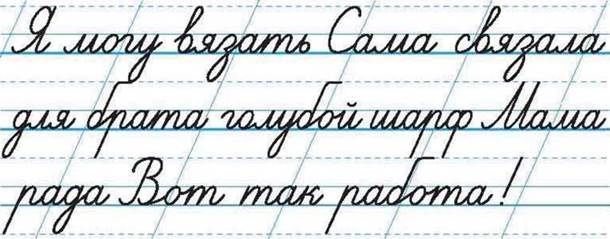 Я могу вязать Сама связала
для брата голубой шарф Мама
рада Вот так работа!